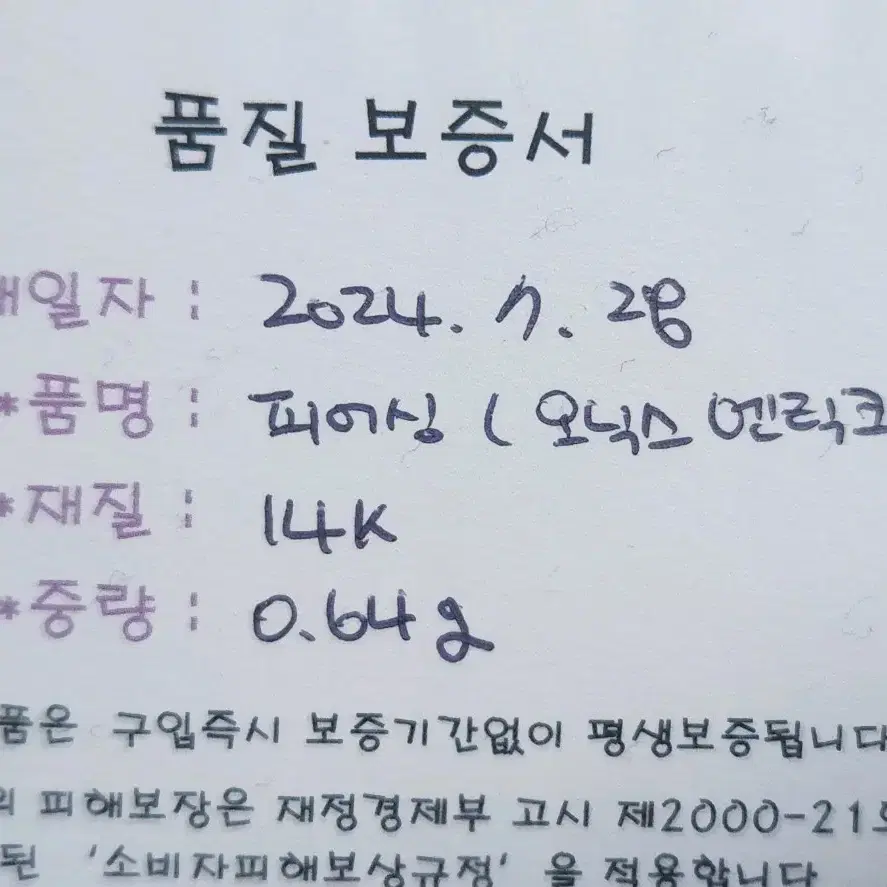 품질 보증서
매일자 : 2024. 7. 28
*품명 : 피어싱 ( 오닉스 엔틱크
*재질 : 14K
*중량 : 0.64g
품은 구입즉시 보증기간없이 평생보증됩니다
의 피해보장은 재정경제부 고시 제2000-21호
된 '소비자피해보상규정' 을 적용합니다